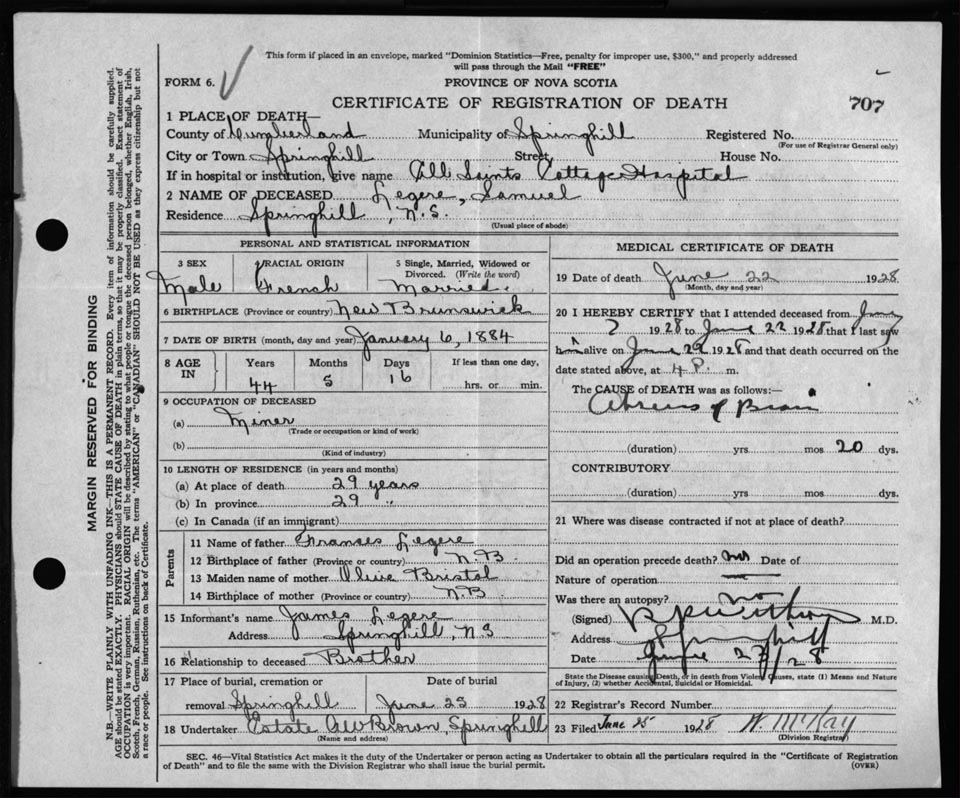 This form if placed in an envelope, marked "Dominion Statistics—Free, penalty for improper use, $300," and properly addressed
will pass through the Mail "FREE"
FORM 6.
PROVINCE OF NOVA SCOTIA
CERTIFICATE OF REGISTRATION OF DEATH
707
1 PLACE OF DEATH—
County of Cumberland Municipality of Springhill Registered No.
(For use of Registrar General only)
City or Town Springhill Street House No.
If in hospital or institution, give name All Saints Cottage Hospital
2 NAME OF DECEASED Legere, Samuel
Residence Springhill, N.S.
(Usual place of abode)
PERSONAL AND STATISTICAL INFORMATION
3 SEX
4 RACIAL ORIGIN
5 Single, Married, Widowed or
Divorced. (Write the word)
Male French Married.
6 BIRTHPLACE (Province or country) New Brunswick
7 DATE OF BIRTH (month, day and year) January 6, 1884
8 AGE IN
Years Months Days If less than one day,
44 5 16 hrs. or min.
9 OCCUPATION OF DECEASED
(a) Miner
(Trade or occupation or kind of work)
(b)
(Kind of industry)
10 LENGTH OF RESIDENCE (in years and months)
(a) At place of death 29 years
(b) In province 29 "
(c) In Canada (if an immigrant)
Parents
11 Name of father Frances Legere
12 Birthplace of father (Province or country) N.B.
13 Maiden name of mother Olive Bristol
14 Birthplace of mother (Province or country) N.B
15 Informant's name James Legere
Address Springhill, N.S
16 Relationship to deceased Brother
17 Place of burial, cremation or Date of burial
removal Springhill June 25 1928
18 Undertaker Estate AW Brown, Springhill
(Name and address)
MEDICAL CERTIFICATE OF DEATH
19 Date of death June 22 1928
(Month, day and year)
20 I HEREBY CERTIFY that I attended deceased from June
1928 to June 22 1928 that I last saw
him alive on June 22 1928 and that death occurred on the
date stated above, at 4 P. m.
The CAUSE of DEATH was as follows:—
Abscess of Brain
(duration) yrs mos 20 dys.
CONTRIBUTORY
(duration) yrs. mos. dys.
21 Where was disease contracted if not at place of death?
Did an operation precede death? no Date of
Nature of operation
Was there an autopsy? no
(Signed) M.D.
Address Springhill
Date June 23/28
State the Disease causing Death, or in death from Violent Causes, state (1) Means and Nature
of Injury, (2) whether Accidental, Suicidal or Homicidal.
22 Registrar's Record Number
23 Filed June 25 1928 W McKay
(Division Registrar)
SEC. 46—Vital Statistics Act makes it the duty of the Undertaker or person acting as Undertaker to obtain all the particulars required in the "Certificate of Registration
of Death" and to file the same with the Division Registrar who shall issue the burial permit. (OVER)
MARGIN RESERVED FOR BINDING
N.B.—WRITE PLAINLY WITH UNFADING INK—THIS IS A PERMANENT RECORD. Every item of information should be carefully supplied.
AGE should be stated EXACTLY. PHYSICIANS should STATE CAUSE OF DEATH in plain terms, so that it may be properly classified. Exact statement of
OCCUPATION is very important. RACIAL ORIGIN will be described by stating to what people or tongue the deceased person belonged, whether English, Irish,
Scotch, French, German, Russian, Ruthenian, etc. The terms "AMERICAN" or "CANADIAN" SHOULD NOT BE USED as they express citizenship but not
a race or people. See instructions on back of Certificate.